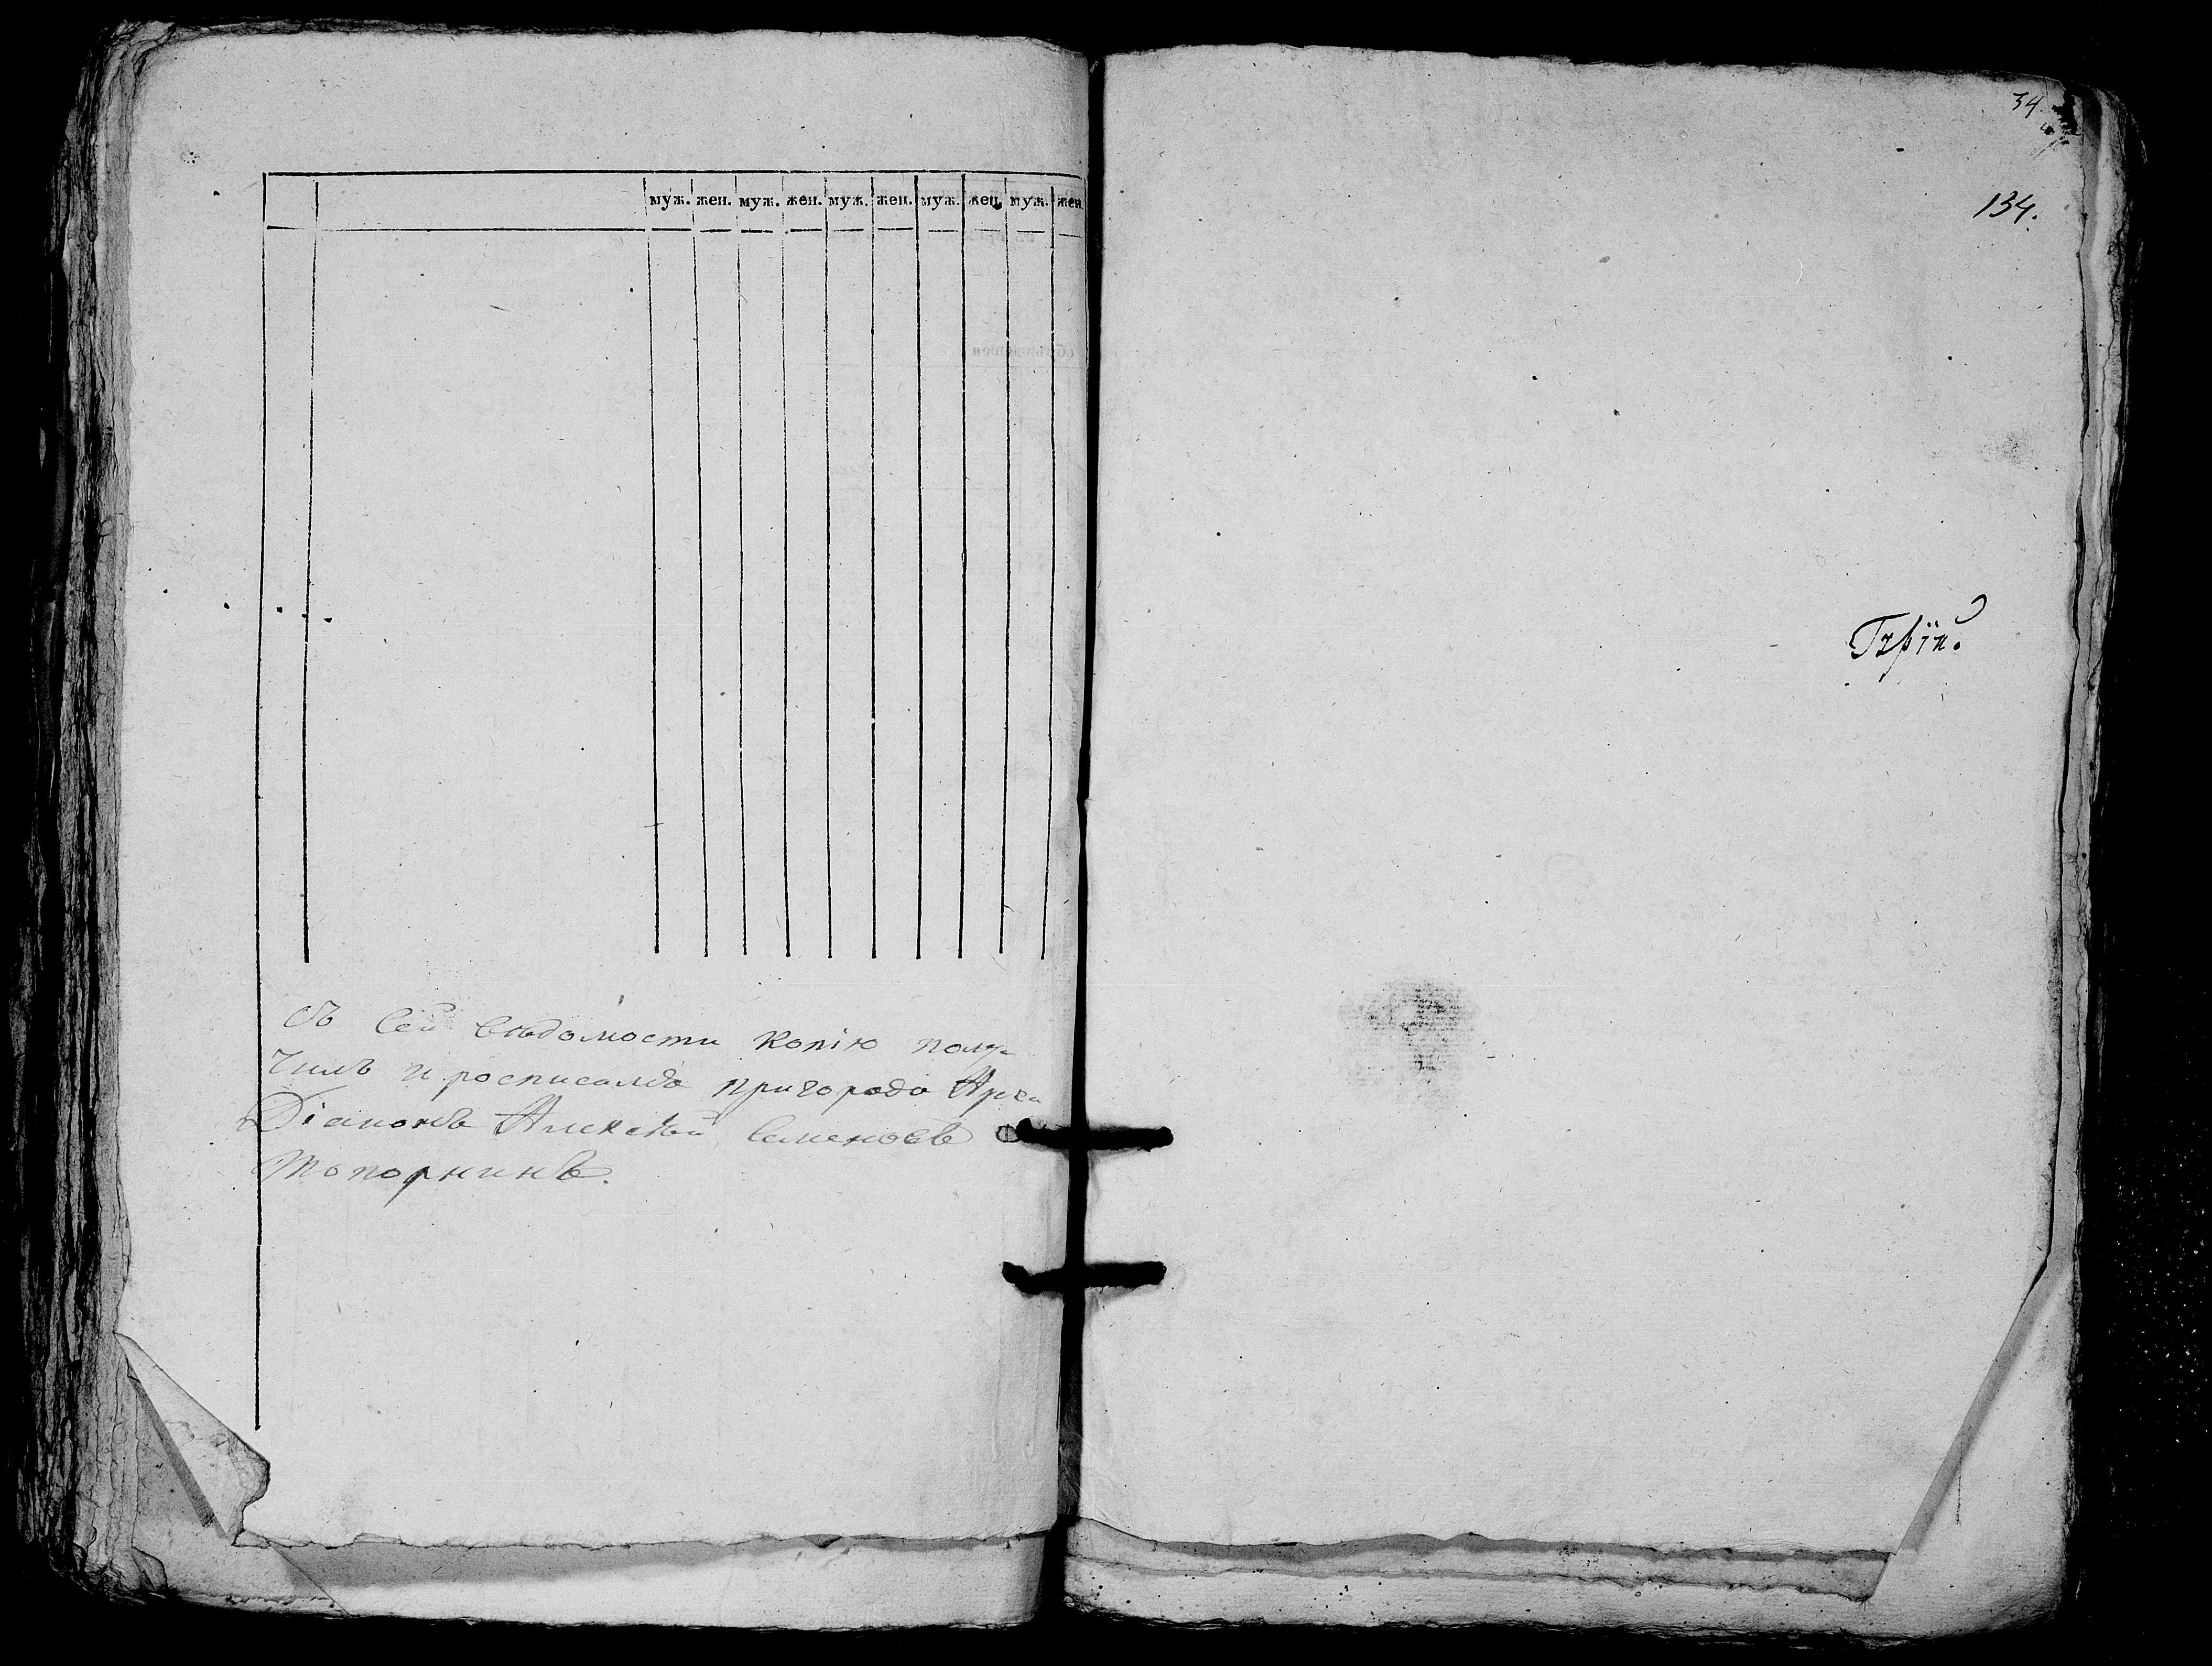 муж. жен. муж. жен. муж. жен. муж. жен. муж. жен.
съ сей вѣдомости копію полу-
чилъ и росписался пригорода Арска
Діаконъ Алексѣй Семеновъ
Топорнинъ.
34.
134.